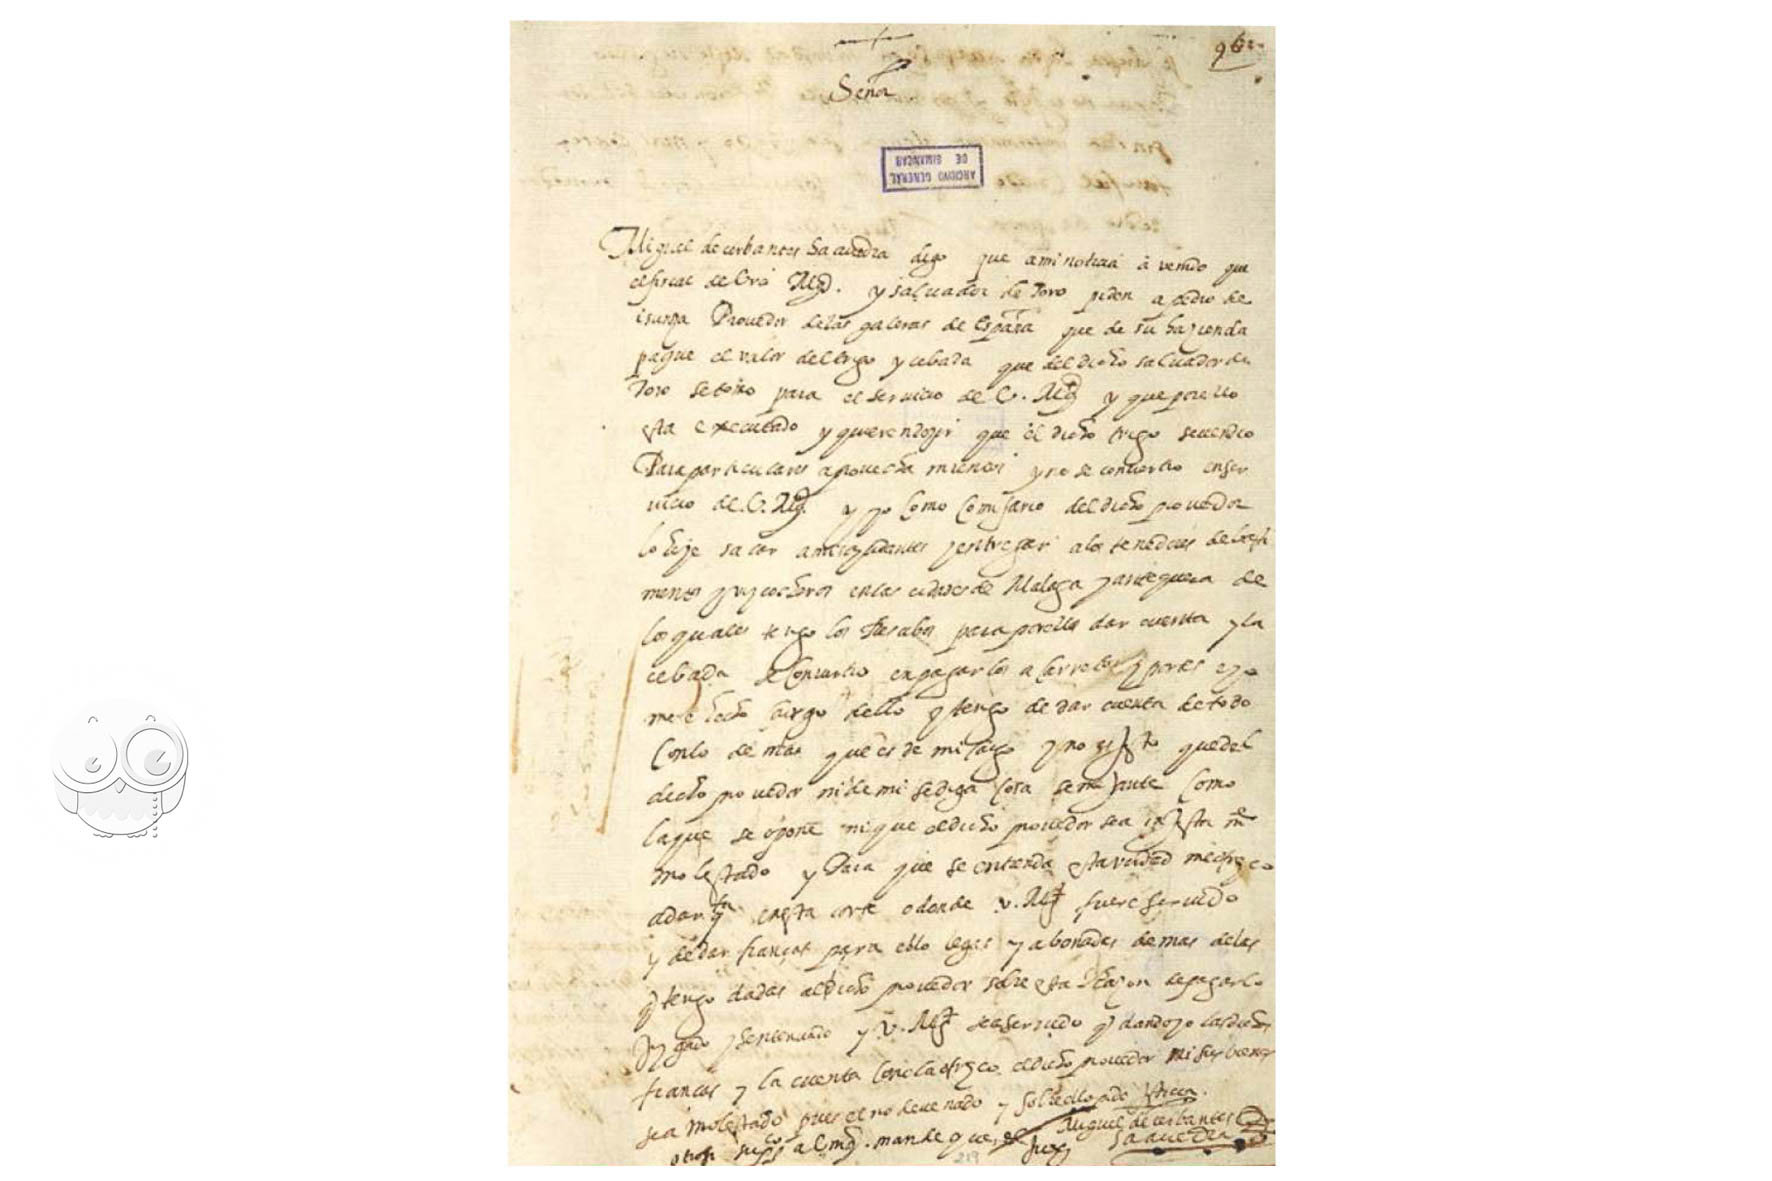 96
Señor
ARCHIVO GENERAL
DE SIMANCAS
Miguel de cerbantes Saavedra digo que a mi noticia a venido que
el fiscal de Vra Magd. y salvador de Toro piden a pedro de
isunça Proveedor de las galeras de España que de su hazienda
pague el valor del trigo y cebada que del dicho salvador de
Toro se tomo para el servicio de V. Magd y que por ello
esta executado y queriendo que el dicho trigo se vendio
Para particulares aprovechamientos y no se convirtio en ser
vicio de .V. Magd. y yo como comisario del dicho proveedor
lo hize sacar a mis ayudantes y entregar a los tenedores de basti
mentos y vizcocheros en las ciudades de Malaga y antequera de
los quales tengo los Recabos para por ellos dar cuenta y la
cebada se convirtio en pagar los acarretos y portes e yo
me e hecho cargo dello y tengo de dar cuenta de todo
con lo demas que es de mi cargo y no es justo que del
dicho proveedor ni de mi se diga cosa semejante como
la que se opone ni que el dicho proveedor sea injustamte
molestado y Para que se entienda esta verdad me ofrezco
a dar en esta corte o donde V. Magd fuere servido
y de dar fianças para ello legas y abonadas demas de las
q tengo dadas al dicho proveedor sobre esta Razon de pagar lo
juzgado y sentenciado y V. Magd sea servido q dando yo las dichas
fianças y la cuenta con la ofrezco el dicho proveedor ni sus bienes
sea molestado pues el no deve nado y sobre ello pido justicia.
Miguel de cerbantes
Saavedra
otrosi suppco a V. Magd. mande que el juez
219